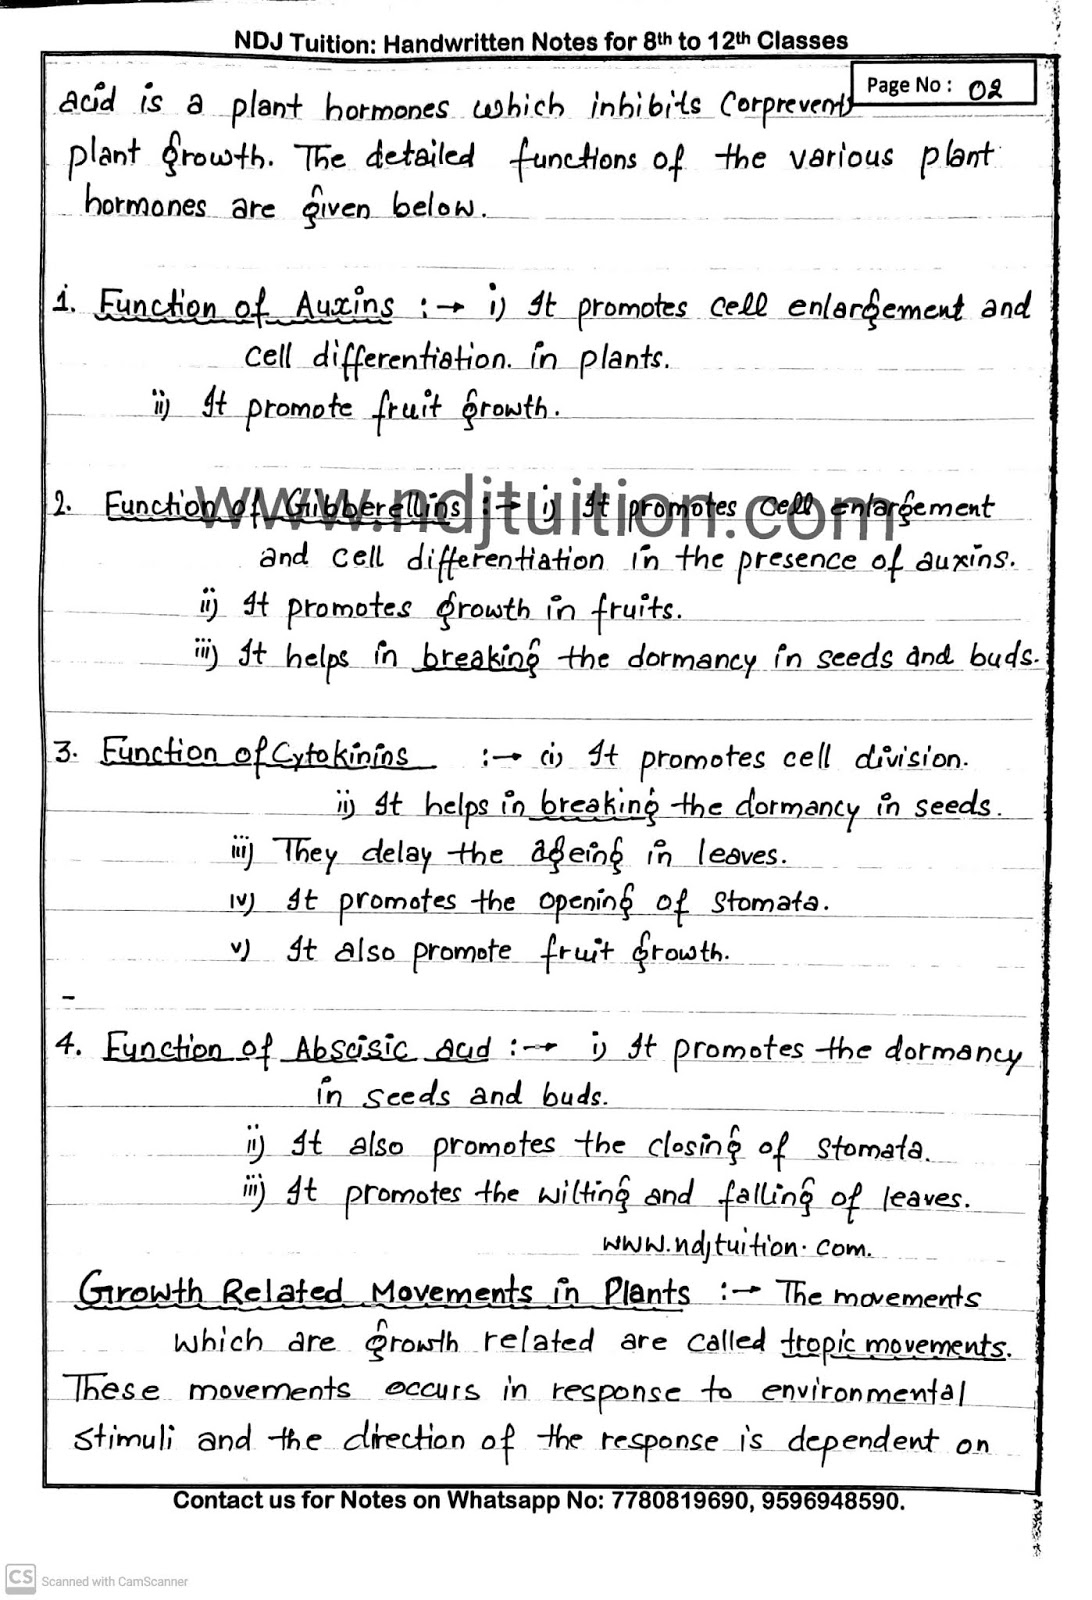 NDJ Tuition: Handwritten Notes for 8th to 12th Classes
Page No : 02
acid is a plant hormones which inhibits (or prevent)
plant growth. The detailed functions of the various plant
hormones are given below.
1. Function of Auxins :→ i) It promotes cell enlargement and
cell differentiation. in plants.
ii) It promote fruit growth.
www.ndjtuition.com
2. Function of Gibberellins :→ i) It promotes cell enlargement
and cell differentiation in the presence of auxins.
ii) It promotes growth in fruits.
iii) It helps in breaking the dormancy in seeds and buds.
3. Function of Cytokinins :→ (i) It promotes cell division.
ii) It helps in breaking the dormancy in seeds.
iii) They delay the ageing in leaves.
iv) It promotes the opening of stomata.
v) It also promote fruit growth.
4. Function of Abscisic acid :→ i) It promotes the dormancy
in seeds and buds.
ii) It also promotes the closing of stomata.
iii) It promotes the wilting and falling of leaves.
www.ndjtuition.com.
Growth Related Movements in Plants :→ The movements
which are growth related are called tropic movements.
These movements occurs in response to environmental
stimuli and the direction of the response is dependent on
Contact us for Notes on Whatsapp No: 7780819690, 9596948590.
CS Scanned with CamScanner